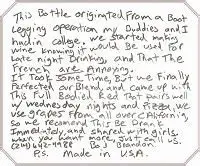 This Bottle originated From a Boot
Legging operation my Buddies and I
had in college. we started making
wine knowing it would Be used For
Late night Drinking, and That The
French are Annoying.
It Took Some Time, But we Finally
Perfected our Blend and came up with
This Full Bodied Red That pairs well
w/ wednesday nights and Pizza, we
use grapes From all over California,
So we recomend This Be Drank
Immediately and shared with girls.
when you want more Just call us.
(214) 642-4788 Bo & Brandon.
P.S. Made in U.S.A.